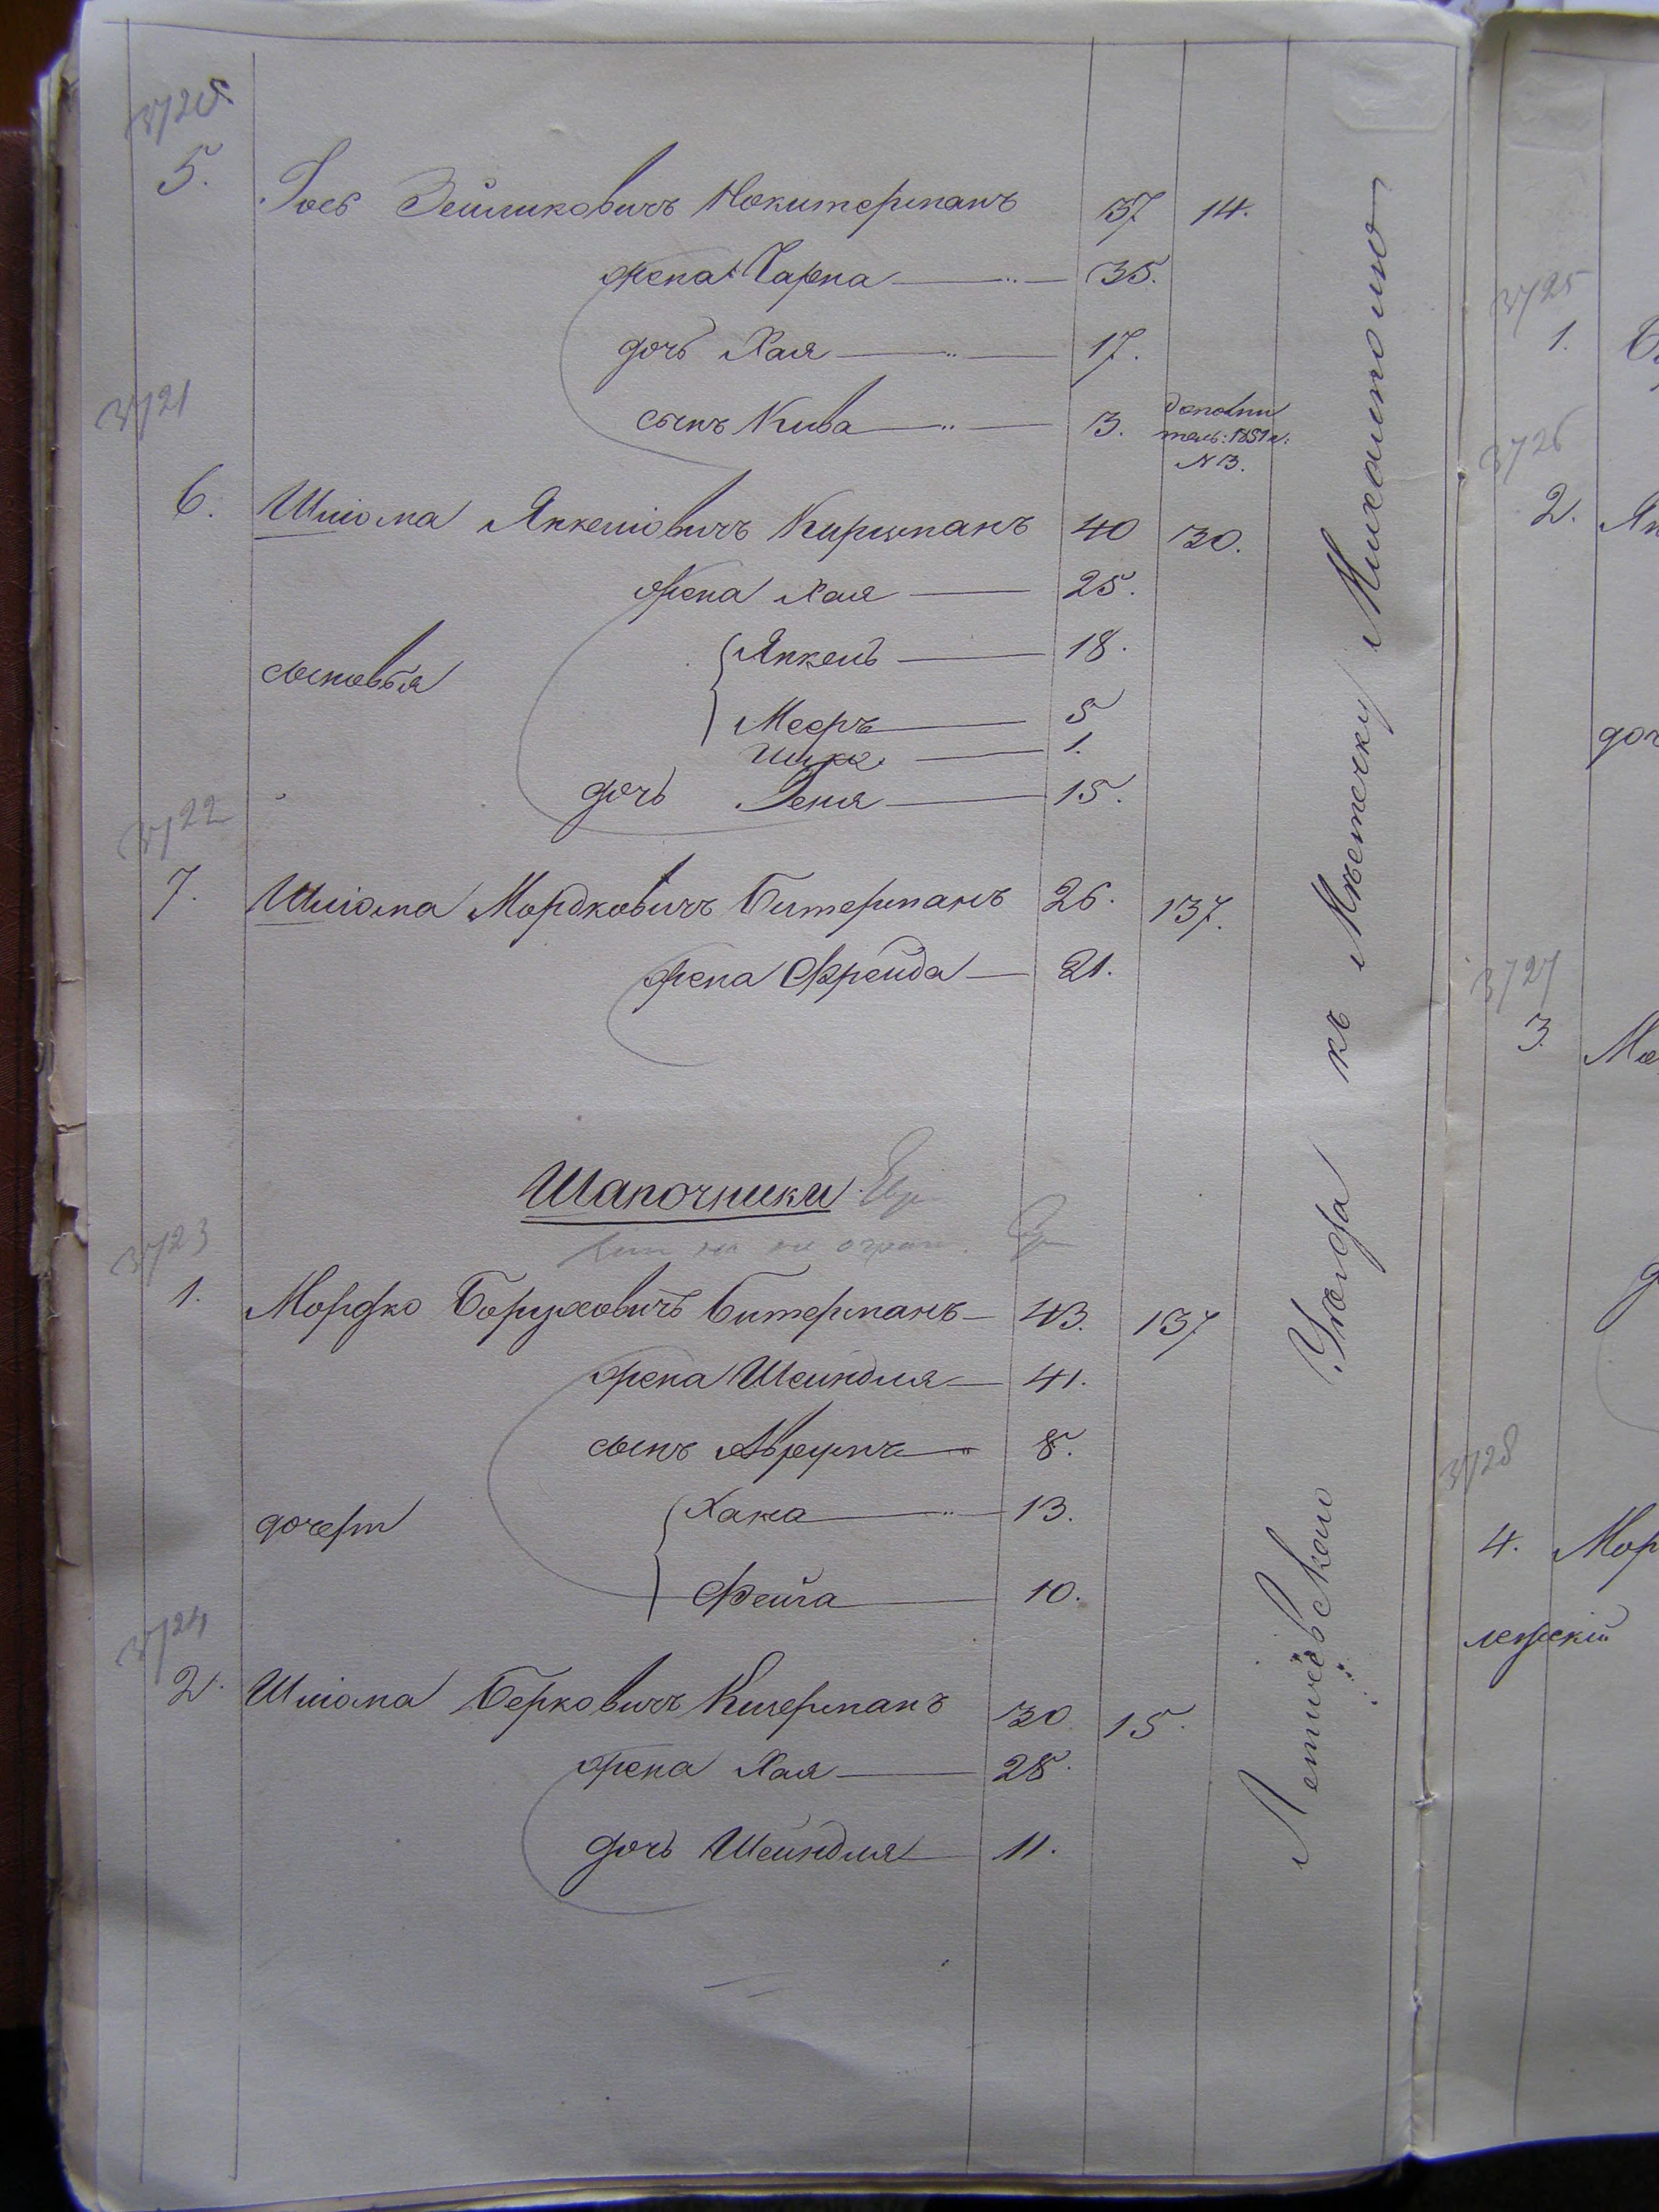 3720
5. Іось Зейликовичъ Нокитерманъ 37 14.
жена Чарна 35.
дочь Хая 17.
3721
сынъ Кива 3. дополни
тель: 1851 г:
N 3.
6. Шліома Янкеліовичъ Киршманъ 40 30.
жена Хая 25.
сыновья
Янкель 18.
Мееръ 5
1.
дочь Геня 15.
3722
7. Шліома Мордковичъ Битерманъ 26. 137.
жена Фрейда 21.
Шапочники Евр
3723
1. Мордко Боруховичъ Битерманъ 43. 137
жена Шейндля 41.
сынъ Аврумъ 8.
дочери
Хана 13.
Фейга 10.
3724
2. Шліома Берковичъ Кигерманъ 30 15.
жена Хая 28.
дочь Шейндля 11.
Летичевскаго Уезда къ Мѣстечку Михалполю
3725
1.
3726
2. Ян
доч
3727
3. Мо
3728
4. Мор